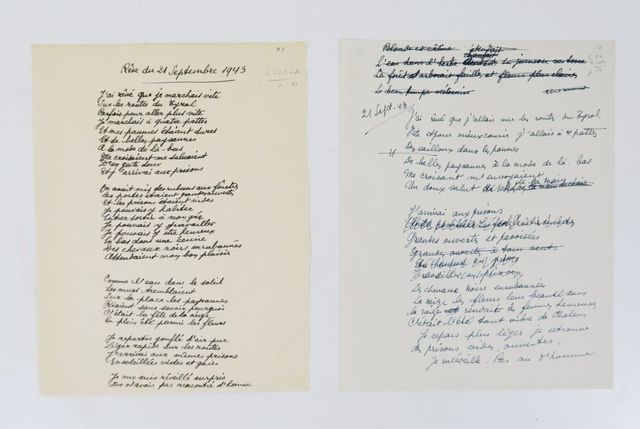 Rêve du 21 Septembre 1943
J'ai rêvé que je marchais vite
Sur les routes du Tyrol
Parfois pour aller plus vite
Je marchais à quatre pattes
Et mes paumes étaient dures
Et de belles paysannes
A la mode de là-bas
Me croisaient me saluaient
D'un geste doux
Et j'arrivai aux prisons
On avait mis des rubans aux fenêtres
Les portes étaient grandes ouvertes
Et les prisons étaient vides
Je pouvais y habiter
Entrer sortir à mon gré
Je pouvais y travailler
Je pouvais y être heureux
En bas dans une écurie
Des chevaux noirs enrubannés
Attendaient mon bon plaisir
Comme l'eau dans le soleil
Les murs tremblaient
Sur la place les paysannes
Riaient sans savoir pourquoi
C'était la fête de la neige
En plein été parmi les fleurs
Je repartis gonflé d'air pur
Léger rapide sur les routes
J'arrivai aux mêmes prisons
Ensoleillées vides et gaies
Je me suis réveillé surpris
De n'avoir pas rencontré d'homme
Blonde et câline
L'eau dans de sa jeunesse
La forêt et fleurs plus claires
Le beau temps
21 Sept. 43
J'ai rêvé que j'allais sur les routes du Tyrol
Et pour mieux courir j'allais à 4 pattes
Les cailloux dans les paumes
De belles paysannes à la mode de là-bas
Me croisant m'envoyaient
Un doux salut de la main
J'arrivai aux prisons
Grandes ouvertes et pavoisées
Grandes ouvertes à tous vents
Les chevaux noirs enrubannés
La neige les fleurs leur beauté dans
la neige et rendant les femmes heureuses
C'était l'été tout vibre de chaleur
Je repars plus léger je retrouve
des prisons vides, ouvertes.
Je m'éveille. Pas un d'homme